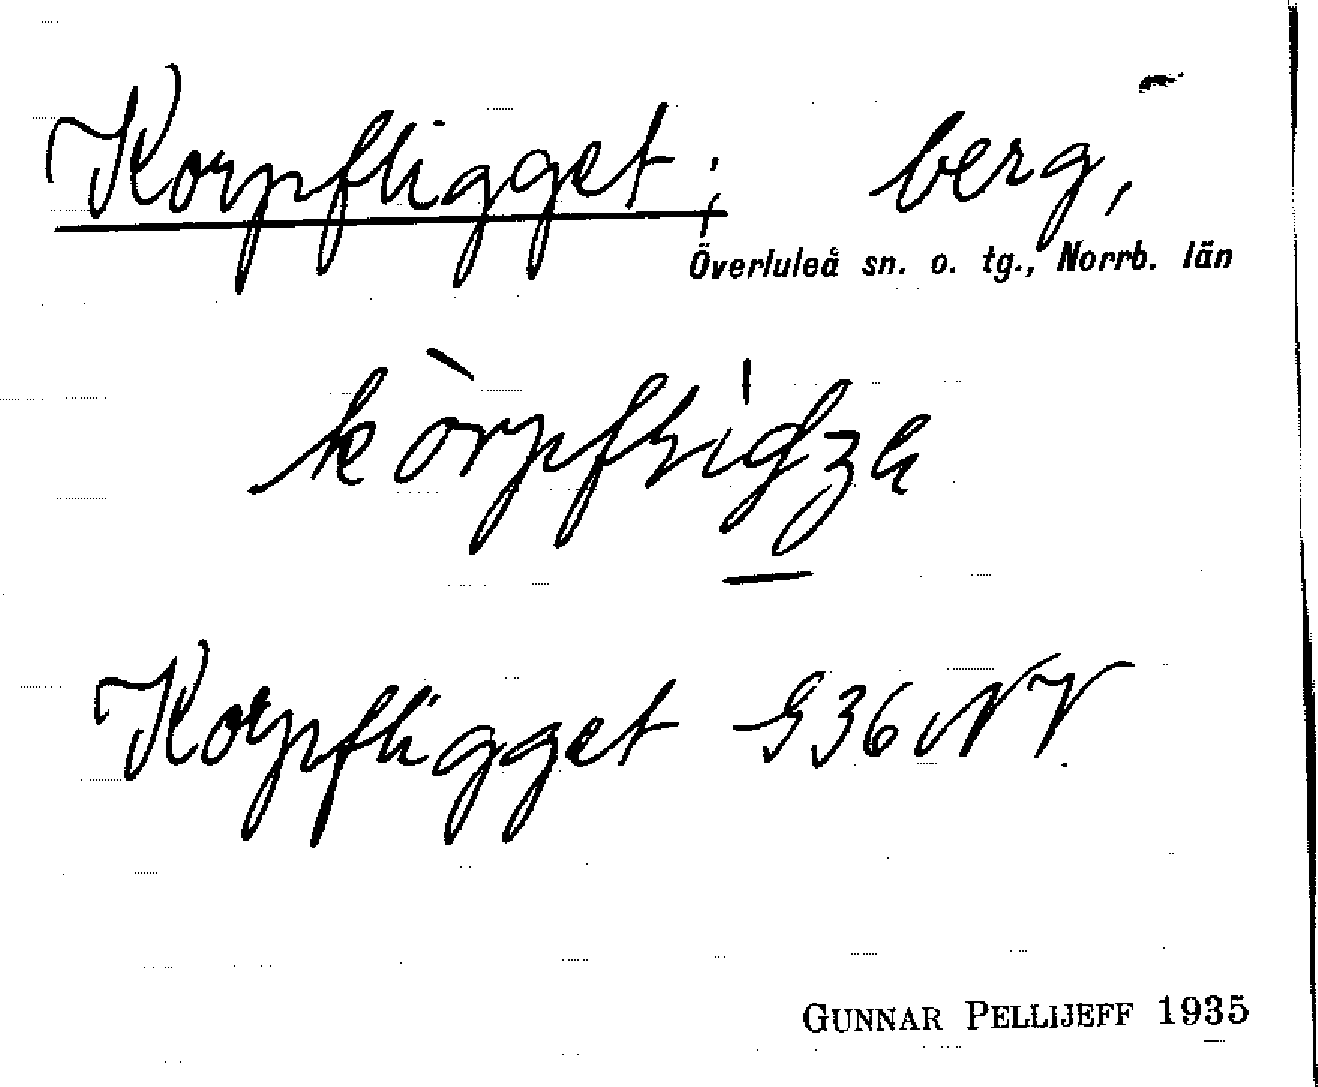 Korpfligget; berg,
Överluleå sn. o. tg., Norrb. län
Korpfligget G36 NV
GUNNAR PELLIJEFF 1935